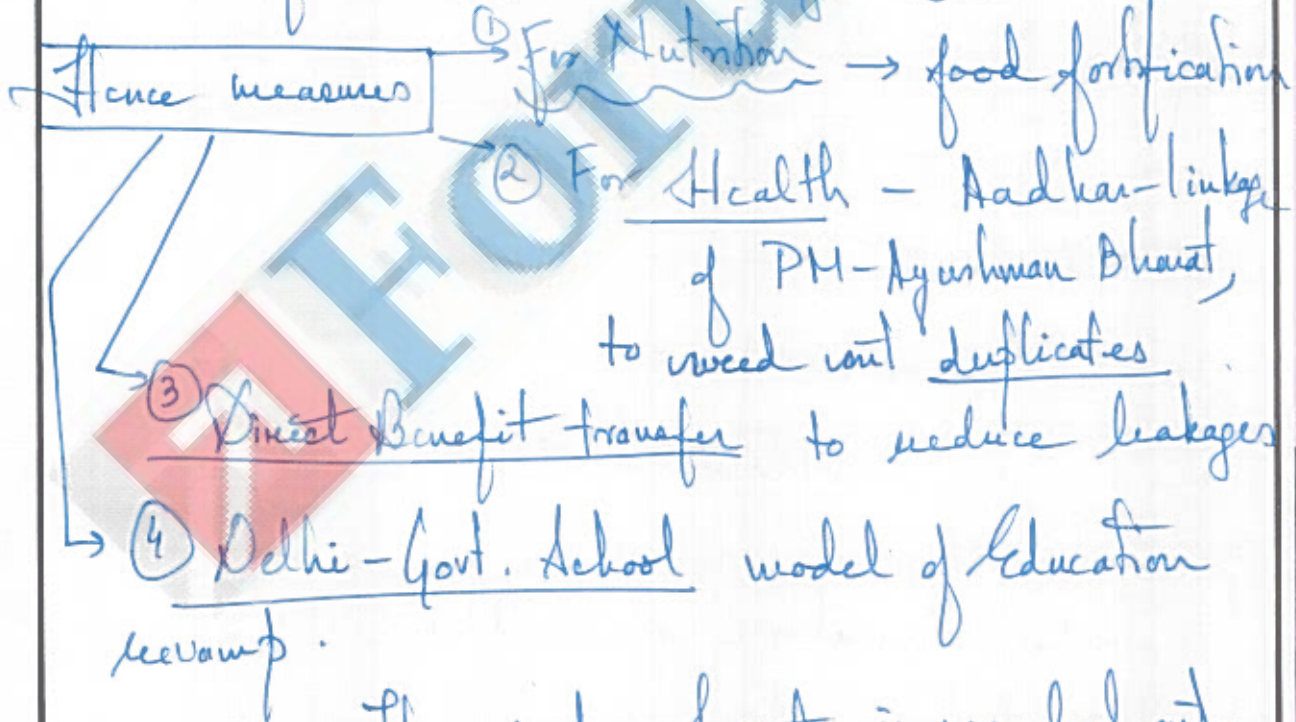 Hence measures
① For Nutrition → food fortification
② For Health - Aadhar-linkage
of PM-Ayushman Bharat,
to weed out duplicates
③ Direct Benefit transfer to reduce leakages
④ Delhi-Govt. School model of Education
revamp.